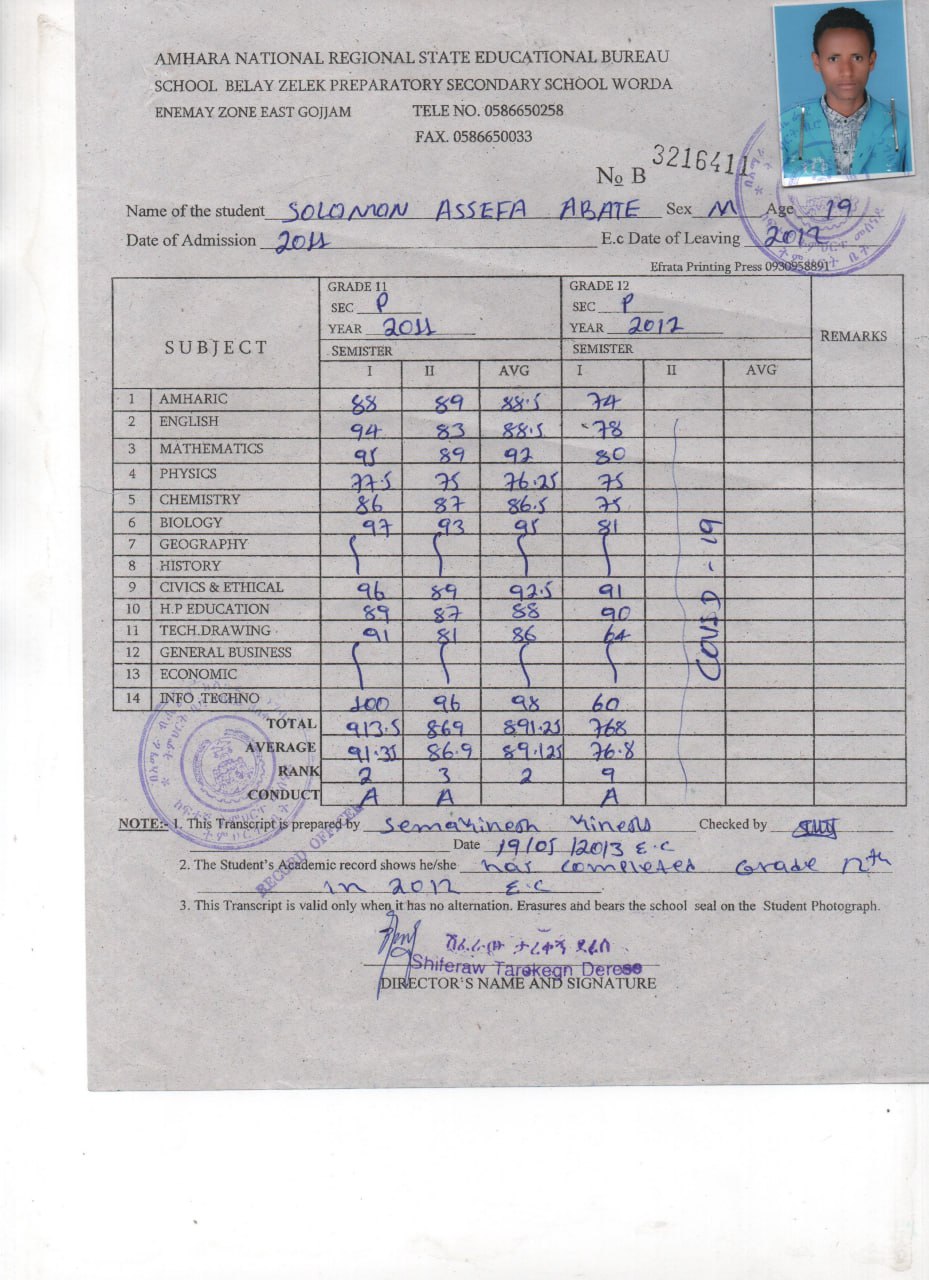 AMHARA NATIONAL REGIONAL STATE EDUCATIONAL BUREAU
SCHOOL BELAY ZELEK PREPARATORY SECONDARY SCHOOL WORDA
ENEMAY ZONE EAST GOJJAM TELE NO. 0586650258
FAX. 0586650033
No B 3216411
Name of the student SOLOMON ASSEFA ABATE Sex M Age 19
Date of Admission 2011 E.c Date of Leaving 2012
Efrata Printing Press 0930958891
SUBJECT GRADE 11 GRADE 12 REMARKS
SEC P SEC P
YEAR 2011 YEAR 2012
SEMISTER SEMISTER
I II AVG I II AVG
1 AMHARIC 88 89 88.5 74
2 ENGLISH 94 83 88.5 78
3 MATHEMATICS 95 89 92 80
4 PHYSICS 77.5 75 76.25 75
5 CHEMISTRY 86 87 86.5 75
6 BIOLOGY 97 93 95 81
7 GEOGRAPHY
8 HISTORY
9 CIVICS & ETHICAL 96 89 92.5 91
10 H.P EDUCATION 89 87 88 90
11 TECH.DRAWING 91 81 86 64
12 GENERAL BUSINESS
13 ECONOMIC
14 INFO .TECHNO 100 96 98 60
COVID - 19
TOTAL 913.5 869 891.25 768
AVERAGE 91.35 86.9 89.125 76.8
RANK 2 3 2 9
CONDUCT A A A
NOTE:- 1. This Transcript is prepared by Checked by
Date 19/05/2013 E.C
RECORD OFFICER
2. The Student's Academic record shows he/she has completed Grade 12th
in 2012 E.C
3. This Transcript is valid only when it has no alternation. Erasures and bears the school seal on the Student Photograph.
ሽፈራው ታረቀኝ ደረሰ
Shiferaw Tarekegn Derese
DIRECTOR'S NAME AND SIGNATURE